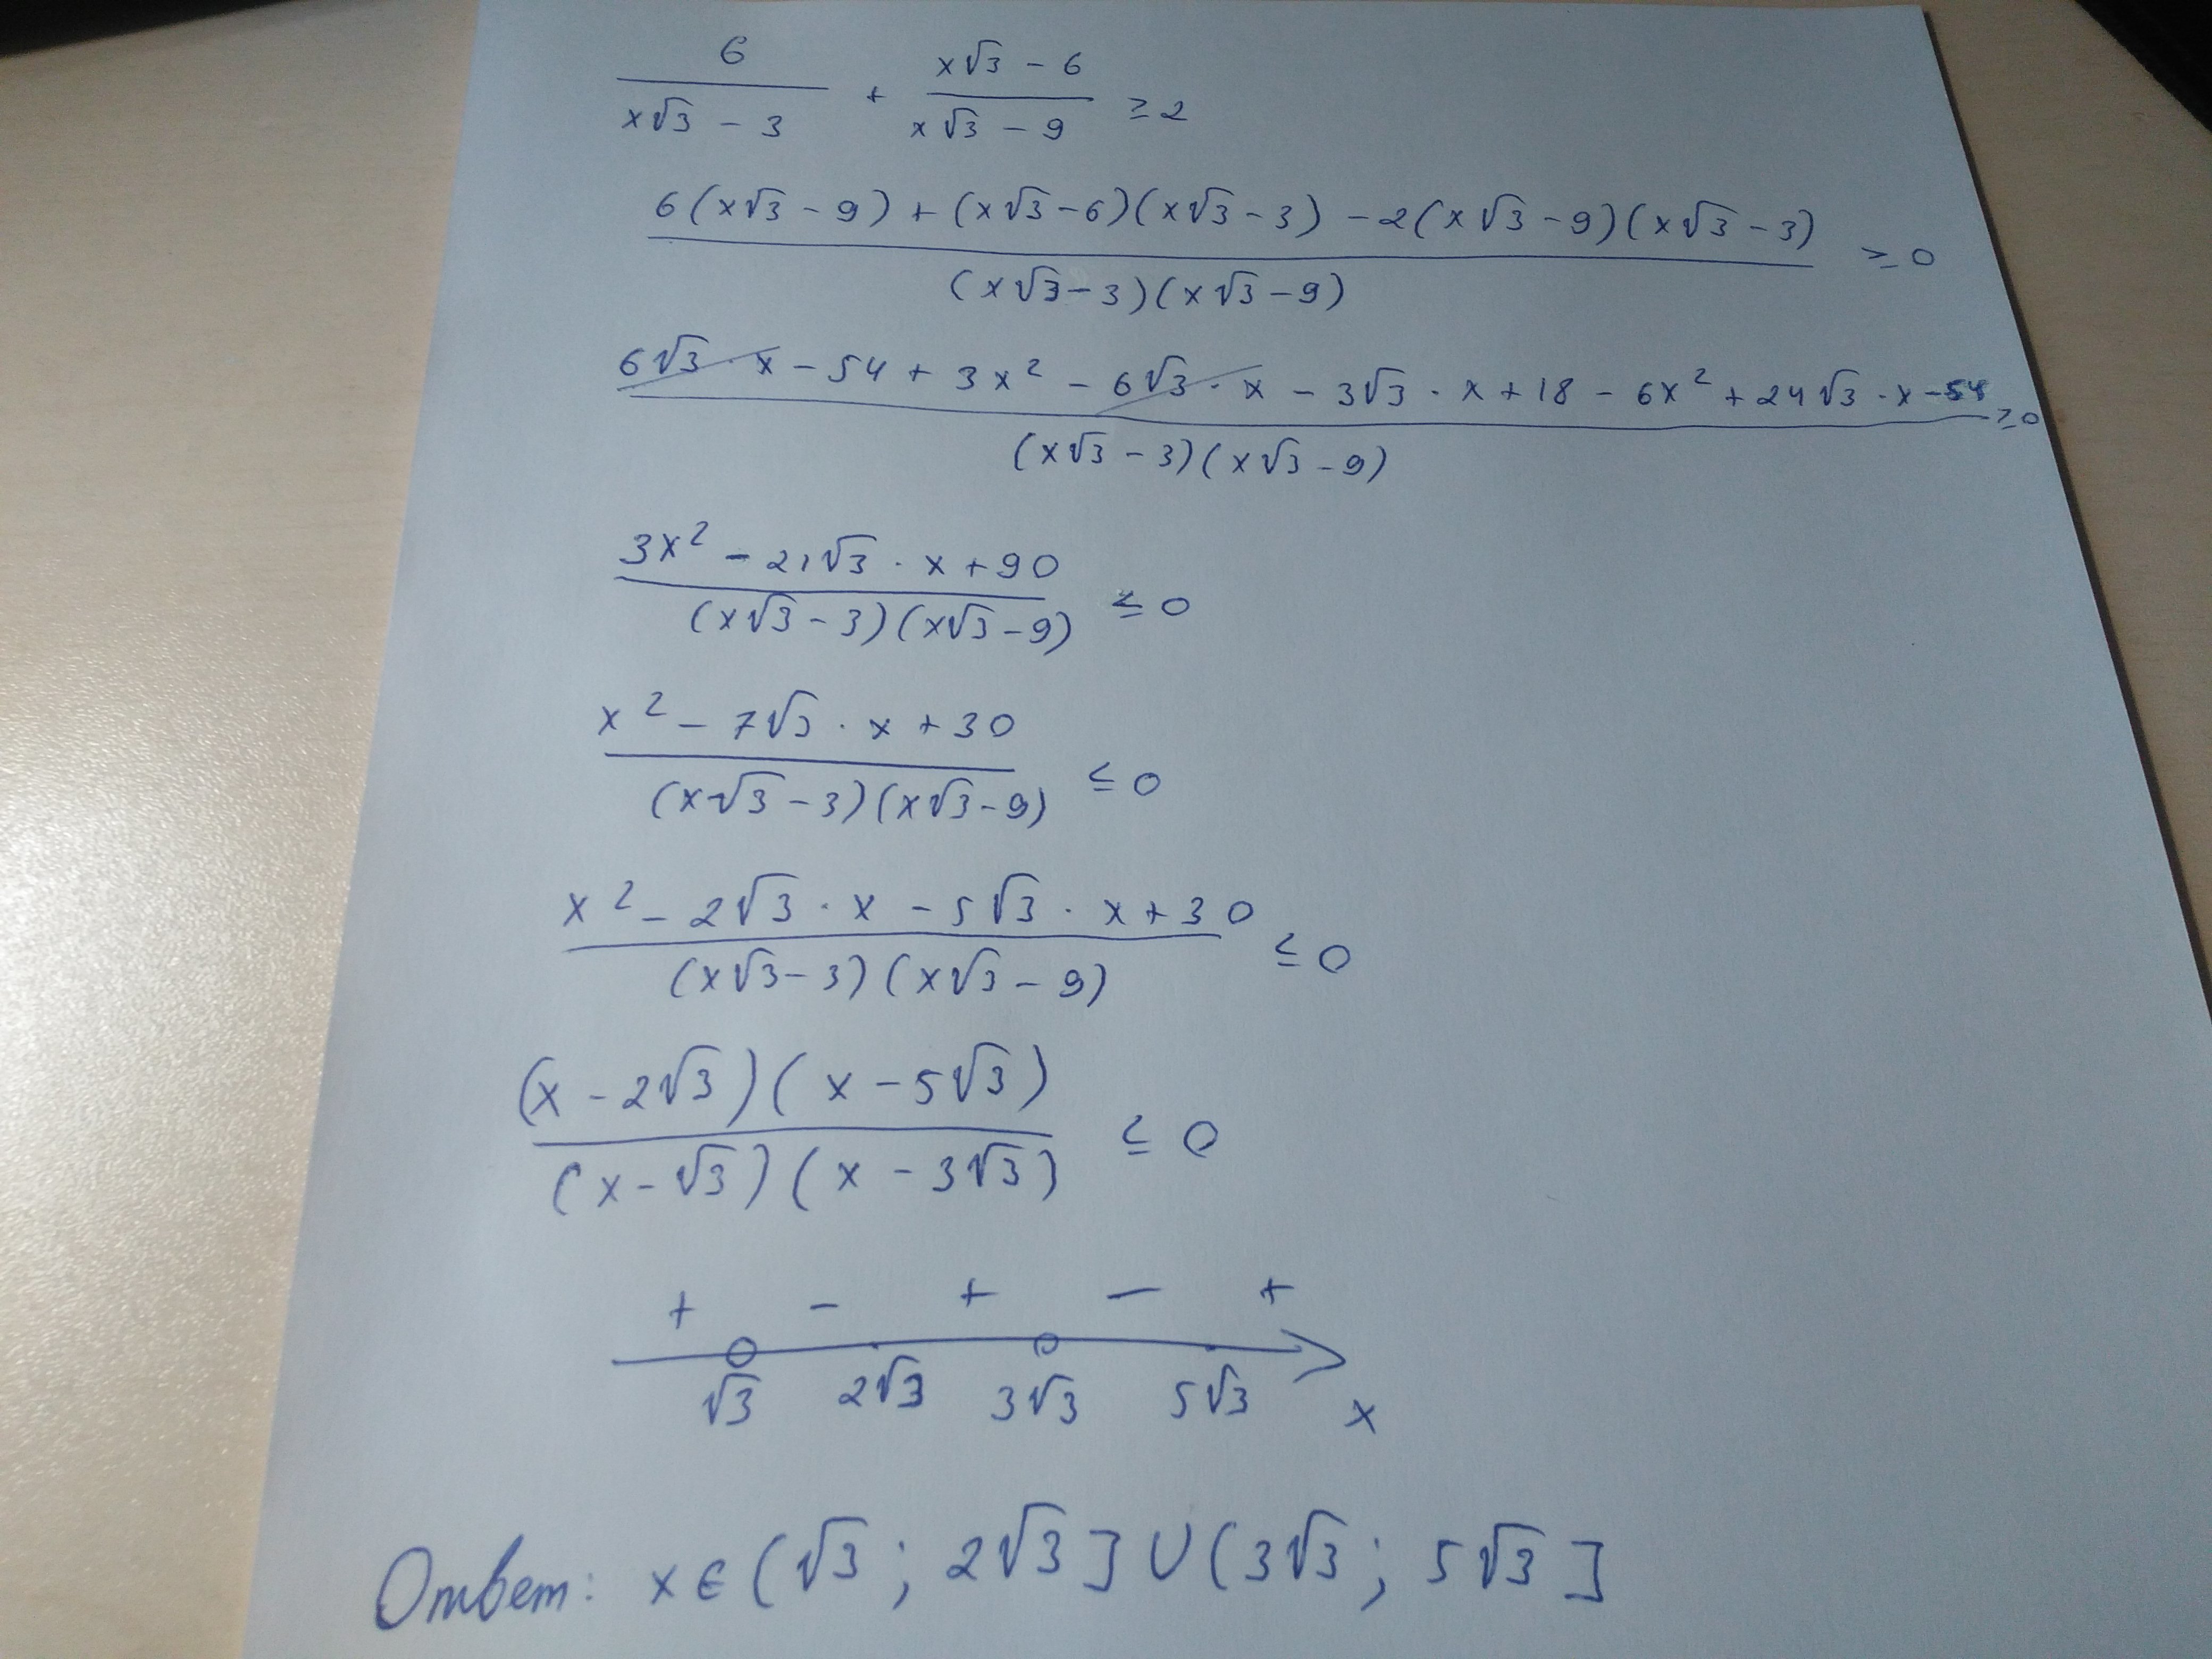 6/(x√3 - 3) + (x√3 - 6)/(x√3 - 9) ≥ 2
(6(x√3 - 9) + (x√3 - 6)(x√3 - 3) - 2(x√3 - 9)(x√3 - 3))/((x√3 - 3)(x√3 - 9)) ≥ 0
(6√3 · x - 54 + 3x² - 6√3 · x - 3√3 · x + 18 - 6x² + 24√3 · x - 54)/((x√3 - 3)(x√3 - 9)) ≥ 0
(3x² - 21√3 · x + 90)/((x√3 - 3)(x√3 - 9)) ≤ 0
(x² - 7√3 · x + 30)/((x√3 - 3)(x√3 - 9)) ≤ 0
(x² - 2√3 · x - 5√3 · x + 30)/((x√3 - 3)(x√3 - 9)) ≤ 0
((x - 2√3)(x - 5√3))/((x - √3)(x - 3√3)) ≤ 0
+ - + - +
√3 2√3 3√3 5√3 x
Ответ: x ∈ (√3; 2√3] ∪ (3√3; 5√3]